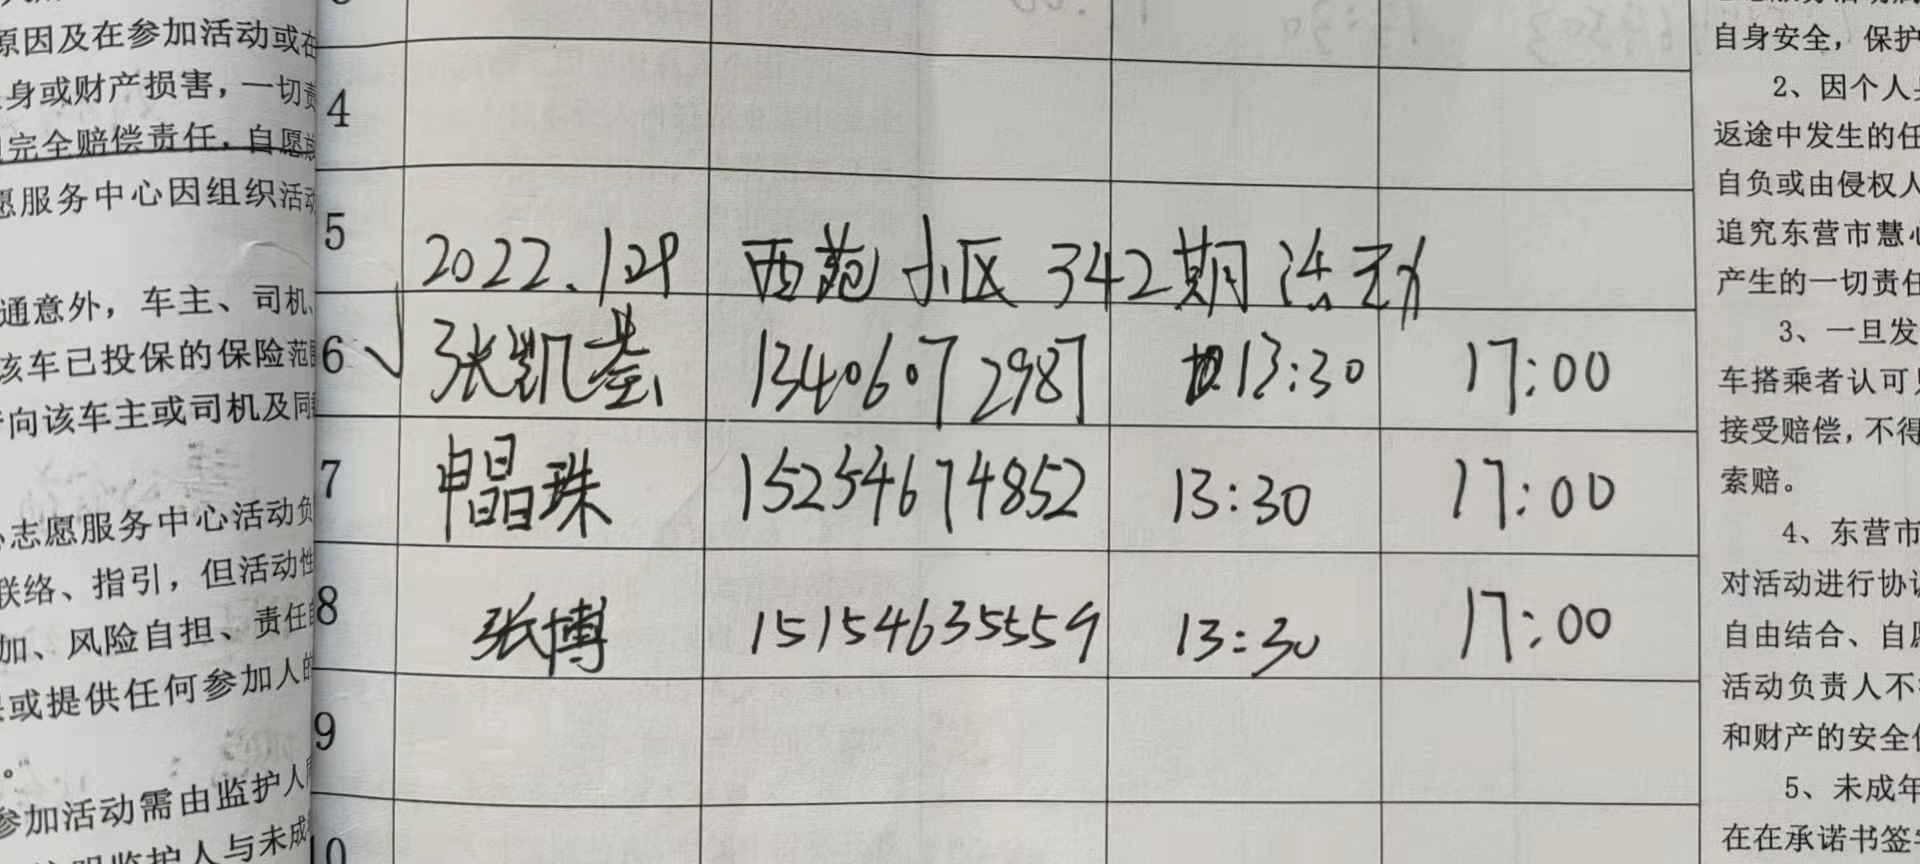 原因及在参加活动或在
身或财产损害，一切责
完全赔偿责任，自愿放
愿服务中心因组织活动
通意外，车主、司机、
该车已投保的保险范围
向该车主或司机及同
志愿服务中心活动负
联络、指引，但活动性
加、风险自担、责任自
或提供任何参加人的
。
参加活动需由监护人
监护人与未成
4
5
2022.1.29 西苑小区342期活动
6 √ 张凯基 13406072987 13:30 17:00
7 申晶珠 15254674852 13:30 17:00
8 张博 15154635559 13:30 17:00
9
10
自身安全，保护
2、因个人
返途中发生的任
自负或由侵权人
追究东营市慧心
产生的一切责任
3、一旦发
车搭乘者认可
接受赔偿，不得
索赔。
4、东营市
对活动进行协议
自由结合、自愿
活动负责人不
和财产的安全
5、未成年
在在承诺书签字